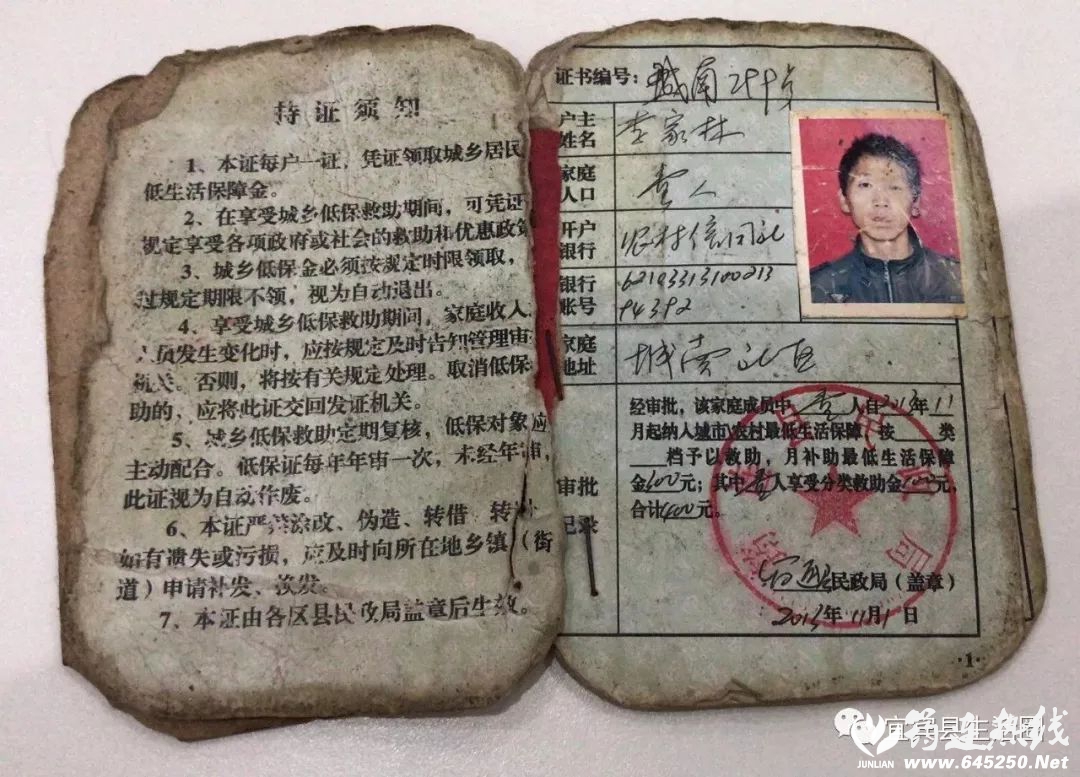 持证须知
1、本证每户一证，凭证领取城乡居民
低生活保障金。
2、在享受城乡低保救助期间，可凭证
规定享受各项政府或社会的救助和优惠政策
3、城乡低保金必须按规定时限领取，
过规定期限不领，视为自动退出。
4、享受城乡低保救助期间，家庭收入、
人员发生变化时，应按规定及时告知管理审
机关。否则，将按有关规定处理。取消低保
助的，应将此证交回发证机关。
5、城乡低保救助定期复核，低保对象应
主动配合。低保证每年年审一次，未经年审，
此证视为自动作废。
6、本证严禁涂改、伪造、转借、转
如有遗失或污损，应及时向所在地乡镇（街
道）申请补发、换发。
7、本证由各区县民政局盖章后生效。
证书编号：城南
户主
姓名
李家林
家庭
人口
壹人
开户
银行
农村信用社
银行
账号
62193313100213
94392
家庭
地址
城南社区
审批
记录
经审批，该家庭成员中 壹 人自2013年11
月起纳入城市\农村最低生活保障，按 类
档予以救助，月补助最低生活保障
金300元；其中壹人享受分类救助金100元，
合计400元。
筠连县民政局（盖章）
2013年11月1日
·1·
宜宾县生活圈
筠连热线
JUNLIAN
www.645250.Net